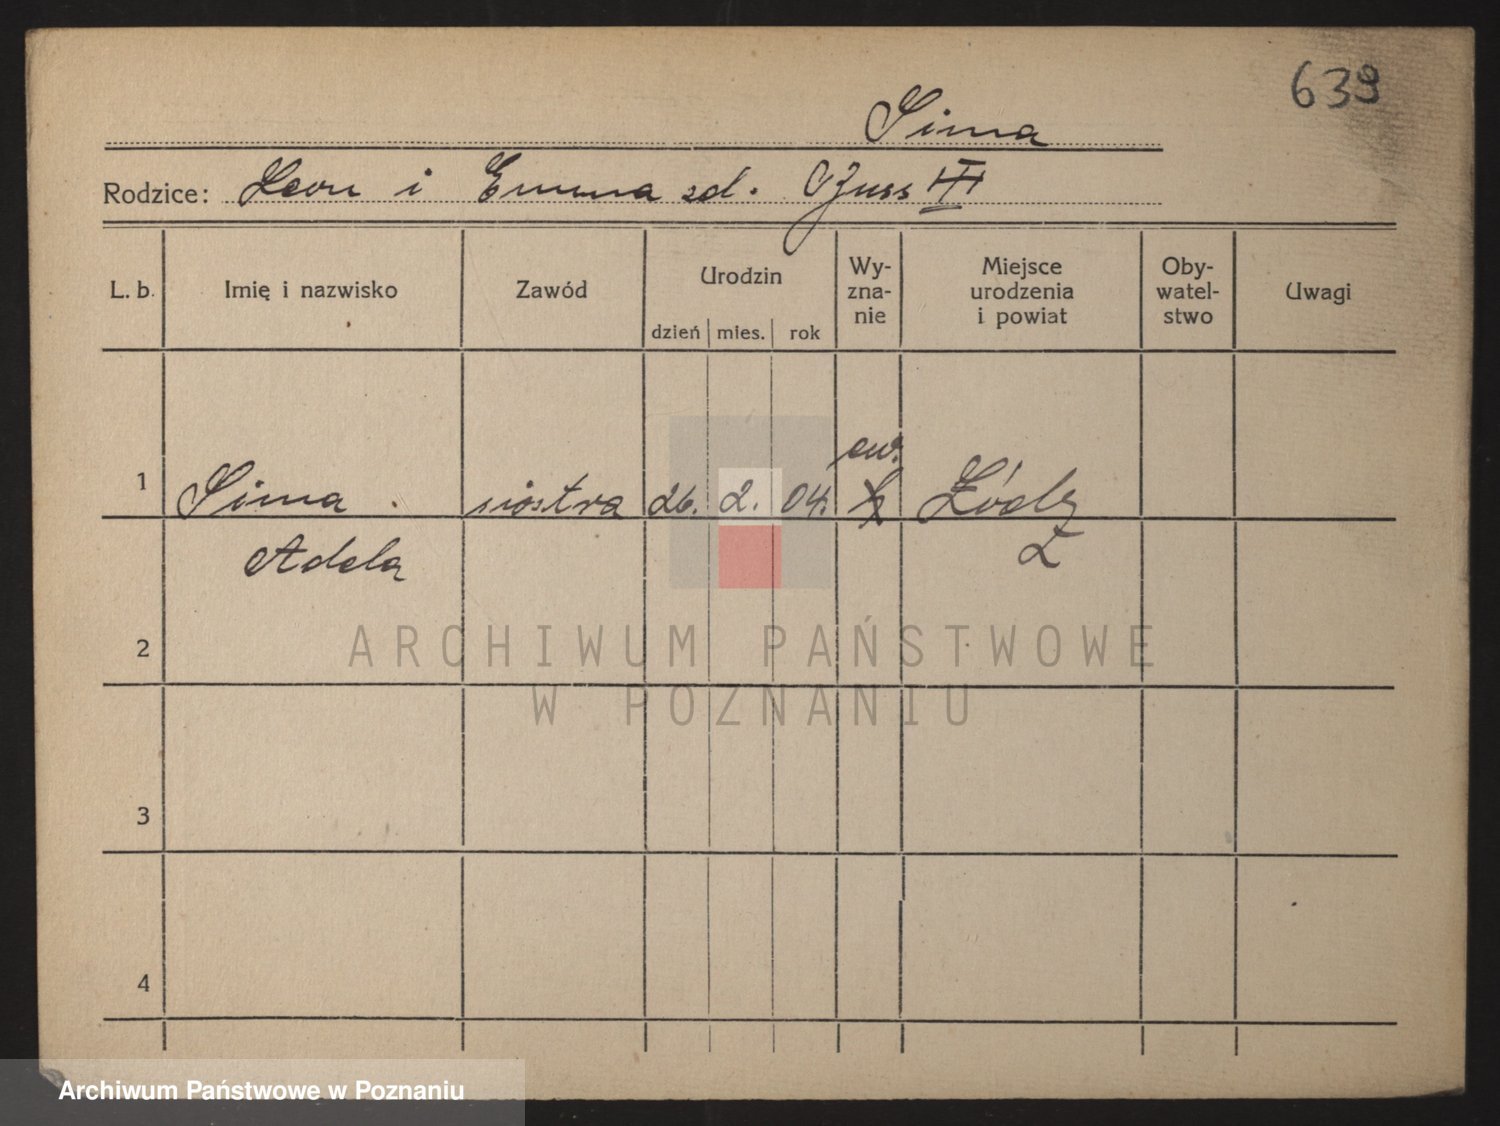 639
Sima
Rodzice: Leon i Emma zd. III
L. b. Imię i nazwisko Zawód Urodzin Wy- zna- nie Miejsce urodzenia i powiat Oby- watel- stwo Uwagi
dzień mies. rok
ew.
1 Sima siostra 26. 2. 04. Łódź
Adela Ł
2
ARCHIWUM PAŃSTWOWE
W POZNANIU
3
4
Archiwum Państwowe w Poznaniu